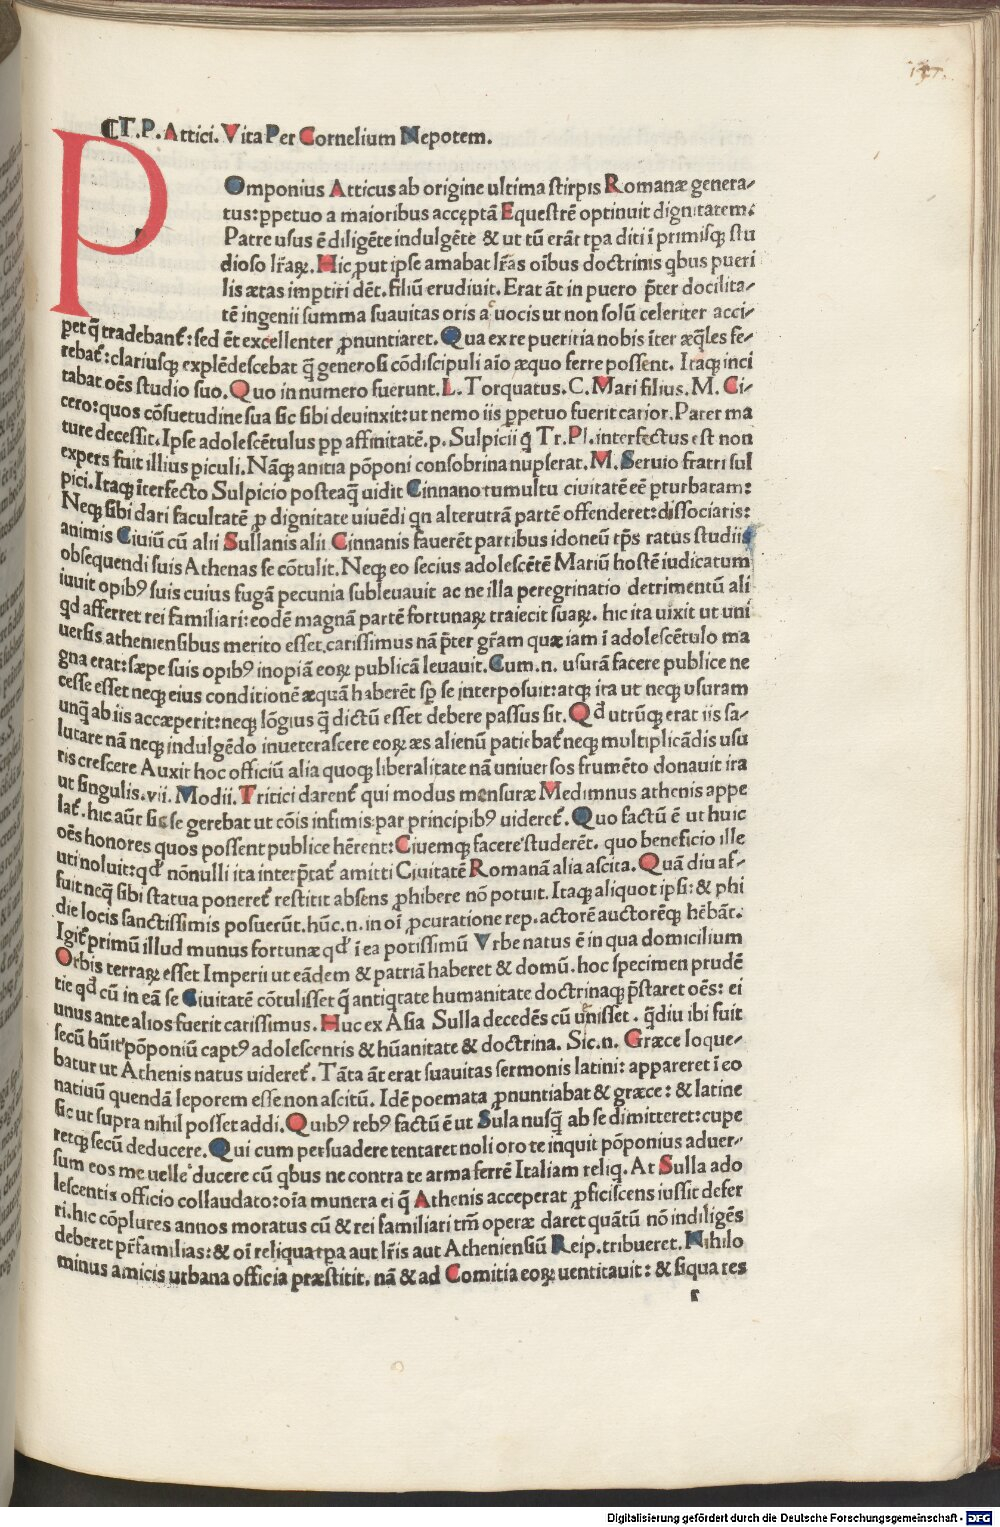 137.
⸿T.P.Attici.Vita Per Cornelium Nepotem.
POmponius Atticus ab origine ultima stirpis Romanæ genera-
tus:ꝑpetuo a maioribus accęptā Equestrē optinuit dignitatem.
Patre usus ē diligēte indulgēte & ut tū erāt tꝑa diti ī primisqꝫ stu
dioso lr̄aꝝ. Hic ꝓut ipse amabat lr̄as oībus doctrinis qbus pueri
lis ætas imꝑtiri dēt. filiū erudiuit. Erat āt in puero p̄ter docilita-
tē ingenii summa suauitas oris a uocis ut non solū celeriter acci-
pet q̄ tradebant᷑: sed ēt excellenter ꝓnuntiaret. Qua ex re pueritia nobis īter æq̄les fe-
rebat᷑: clariusqꝫ explēdescebat q̄ generosi cōdiscipuli aīo æquo ferre possent. Itaqꝫ inci
tabat oēs studio suo. Quo in numero fuerunt. L. Torquatus. C. Mari filius. M. Ci-
cero: quos cōsuetudine sua sic sibi deuinxit: ut nemo iis ꝑpetuo fuerit carior. Pater ma
ture decessit. Ipse adolescētulus ꝓp affinitatē. p. Sulpicii q̄ Tr. Pl. interfectus est non
expers fuit illius piculi. Nāqꝫ anitia pōponi consobrina nupserat. M. Seruio fratri sul
pici. Itaqꝫ īterfecto Sulpicio posteaq̄ uidit Cinnano tumultu ciuitatē eē ꝑturbatam:
Neqꝫ sibi dari facultatē ꝓ dignitate uiuēdi qn alterutrā partē offenderet: dissociaris:
animis Ciuiū cū alii Sullanis alii Cinnanis fauerēt partibus idoneū tp̄s ratus studiis
obsequendi suis Athenas se cōtulit. Neqꝫ eo secius adolescētē Mariū hostē iudicatum
iuuit opibꝰ suis cuius fugā pecunia subleuauit ac ne illa peregrinatio detrimentū ali
qd afferret rei familiari: eodē magnā partē fortunaꝝ traiecit suaꝝ. hic ita uixit ut uni
uersis atheniensibus merito esset carissimus nā p̄ter gr̄am quæ iam ī adolescētulo ma
gna erat: sæpe suis opibꝰ inopiā eoꝝ publicā leuauit. Cum.n. usurā facere publice ne
cesse esset neqꝫ eius conditionē æquā haberēt sp̄ se interposuit: atqꝫ ita ut neqꝫ usuram
unq̄ ab iis accæperit: neqꝫ lōgius q̄ dictū esset debere passus sit. Qd utrūqꝫ erat iis sa-
lutare nā neqꝫ indulgēdo inueterascere eoꝝ æs alienū patiebat᷑ neqꝫ multiplicādis usu
ris crescere Auxit hoc officiū alia quoqꝫ liberalitate nā uniuersos frumēto donauit ita
ut singulis.vii. Modii. Tritici darent᷑ qui modus mensuræ Medimnus athenis appe
lat᷑. hic aūt sic se gerebat ut cōis infimis par principibꝰ uideret᷑. Quo factū ē ut huic
oēs honores quos possent publice hērent: Ciuemqꝫ facere studerēt. quo beneficio ille
uti noluit: qd nōnulli ita interp̄tat᷑ amitti Ciuitatē Romanā alia ascita. Quā diu af-
fuit neqꝫ sibi statua poneret᷑ restitit absens ꝓhibere nō potuit. Itaqꝫ aliquot ipsi: & phi
die locis sanctissimis posuerūt. hūc.n. in oī ꝓcuratione rep. actorē auctorēqꝫ hēbāt.
Igit᷑ primū illud munus fortunæ qd ī ea potissimū Vrbe natus ē in qua domicilium
Orbis terraꝝ esset Imperii ut eādem & patriā haberet & domū. hoc specimen prudē
tie qd cū in eā se Ciuitatē cōtulisset q̄ antiqtate humanitate doctrinaqꝫ p̄staret oēs: ei
unus ante alios fuerit carissimus. Huc ex Asia Sulla decedēs cū uēnisset. q̄diu ibi fuit
secū hūit pōponiū captꝰ adolescentis & hūanitate & doctrina. Sic.n. Græce loque-
batur ut Athenis natus uideret᷑. Tāta āt erat suauitas sermonis latini: appareret ī eo
natiuū quendā leporem esse non ascitū. Idē poemata ꝓnuntiabat & græce: & latine
sic ut supra nihil posset addi. Quibꝰ rebꝰ factū ē ut Sula nusq̄ ab se dimitteret: cupe
retqꝫ secū deducere. Qui cum persuadere tentaret noli oro te inquit pōponius aduer-
sum eos me uelle ducere cū qbus ne contra te arma ferrē Italiam reliq. At Sulla ado
lescentis officio collaudato: oīa munera ei q̄ Athenis acceperat ꝓficiscens iussit defer
ri. hic cōplures annos moratus cū & rei familiari tm̄ operæ daret quātū nō indiligēs
deberet pr̄familias: & oī reliqua tꝑa aut lr̄is aut Atheniensiū Reip. tribueret. Nihilo
minus amicis urbana officia præstitit. nā & ad Comitia eoꝝ uentitauit: & siqua res
r
Digitalisierung gefördert durch die Deutsche Forschungsgemeinschaft - DFG